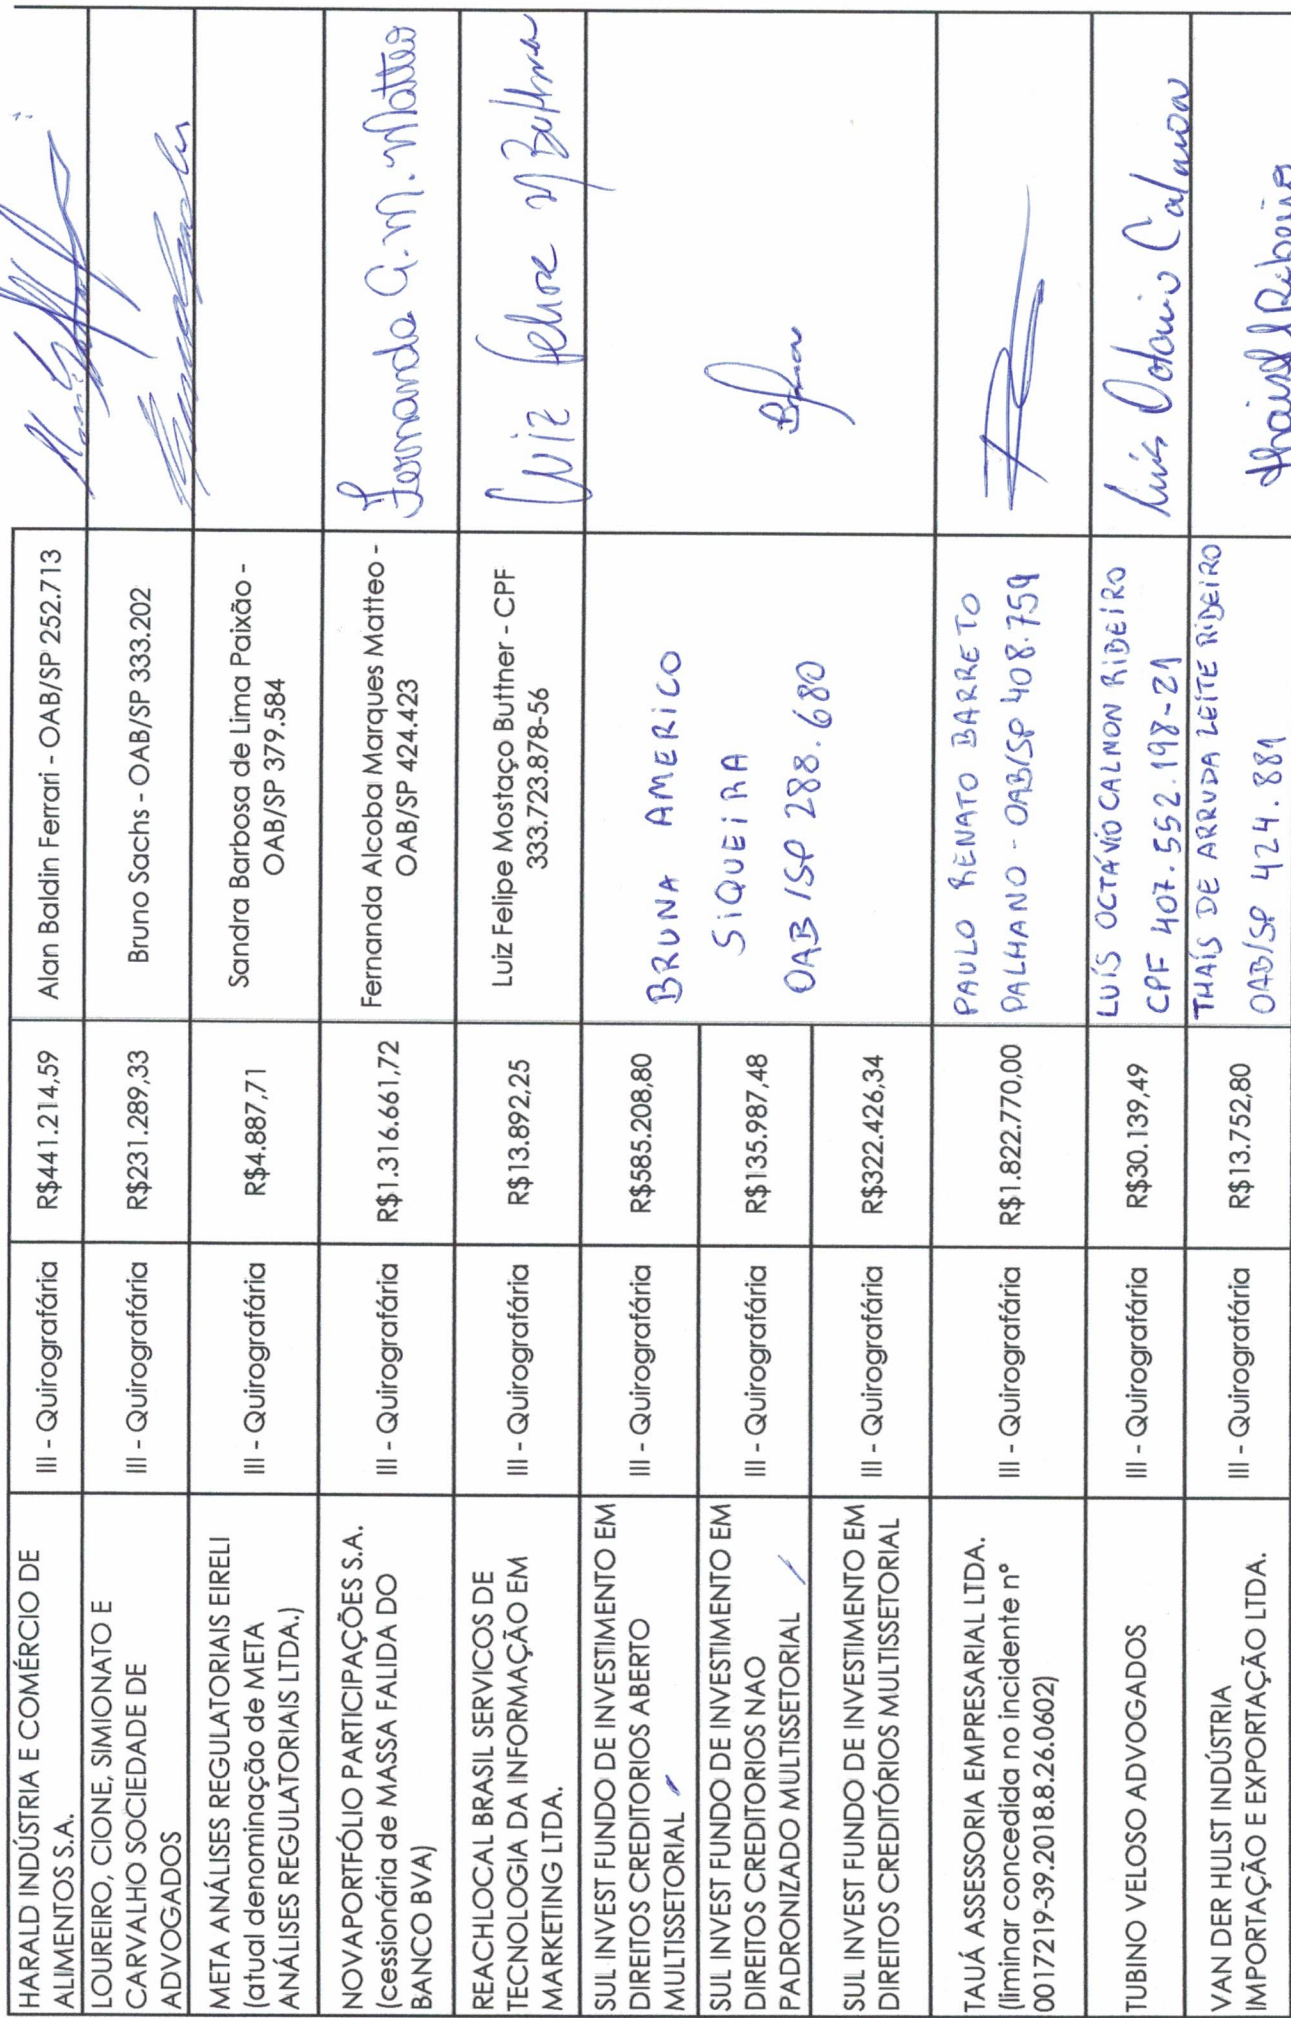 HARALD INDÚSTRIA E COMÉRCIO DE
ALIMENTOS S.A.
III - Quirografária
R$441.214,59
Alan Baldin Ferrari - OAB/SP 252.713
LOUREIRO, CIONE, SIMIONATO E
CARVALHO SOCIEDADE DE
ADVOGADOS
III - Quirografária
R$231.289,33
Bruno Sachs - OAB/SP 333.202
META ANÁLISES REGULATORIAIS EIRELI
(atual denominação de META
ANÁLISES REGULATORIAIS LTDA.)
III - Quirografária
R$4.887,71
Sandra Barbosa de Lima Paixão -
OAB/SP 379.584
NOVAPORTFÓLIO PARTICIPAÇÕES S.A.
(cessionária de MASSA FALIDA DO
BANCO BVA)
III - Quirografária
R$1.316.661,72
Fernanda Alcoba Marques Matteo -
OAB/SP 424.423
Fernanda A. M. Matteo
REACHLOCAL BRASIL SERVICOS DE
TECNOLOGIA DA INFORMAÇÃO EM
MARKETING LTDA.
III - Quirografária
R$13.892,25
Luiz Felipe Mostaço Buttner - CPF
333.723.878-56
Luiz Felipe M Buttner
SUL INVEST FUNDO DE INVESTIMENTO EM
DIREITOS CREDITORIOS ABERTO
MULTISSETORIAL
III - Quirografária
R$585.208,80
BRUNA AMERICO
SIQUEIRA
OAB/SP 288.680
SUL INVEST FUNDO DE INVESTIMENTO EM
DIREITOS CREDITORIOS NAO
PADRONIZADO MULTISSETORIAL
III - Quirografária
R$135.987,48
SUL INVEST FUNDO DE INVESTIMENTO EM
DIREITOS CREDITÓRIOS MULTISSETORIAL
III - Quirografária
R$322.426,34
TAUÁ ASSESSORIA EMPRESARIAL LTDA.
(liminar concedida no incidente nº
0017219-39.2018.8.26.0602)
III - Quirografária
R$1.822.770,00
PAULO RENATO BARRETO
PALHANO - OAB/SP 408.759
TUBINO VELOSO ADVOGADOS
III - Quirografária
R$30.139,49
LUÍS OCTÁVIO CALMON RIBEIRO
CPF 407.552.198-21
Luís Octavio Calmon
VAN DER HULST INDÚSTRIA
IMPORTAÇÃO E EXPORTAÇÃO LTDA.
III - Quirografária
R$13.752,80
THAÍS DE ARRUDA LEITE RIBEIRO
OAB/SP 424.881